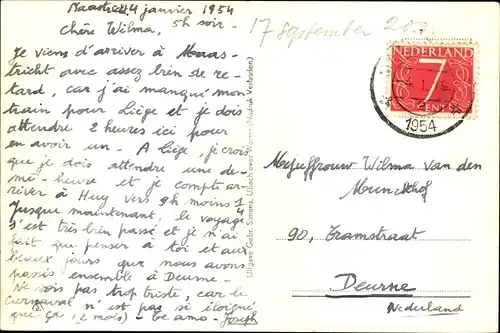 Maastricht, 4 janvier 1954
5h soir -
Chère Wilma,
Je viens d'arriver à Maas-
tricht avec assez bien de re-
tard, car j'ai manqué mon
train pour Liège et je dois
attendre 2 heures ici pour
en avoir un - A Liège je crois
que je dois attendre une de-
mi-heure et je compte ar-
river à Huy vers 9h moins 1/4
Jusque maintenant, le voyage
s'est très bien passé et je n'ai
fait que penser à toi et aux
beaux jours que nous avons
passés ensemble à Deurne -
Ne sois pas trop triste, car le
Carnaval n'est pas si éloigné
que ça (2 mois) - te amo - Joseph
17 september
Uitgave Gebr. Simons, Ubach over Worms (Nadruk Verboden)
NEDERLAND
7
CENT
1954
Mejuffrouw Wilma van den
Munckhof
90, Tramstraat
Deurne
Nederland